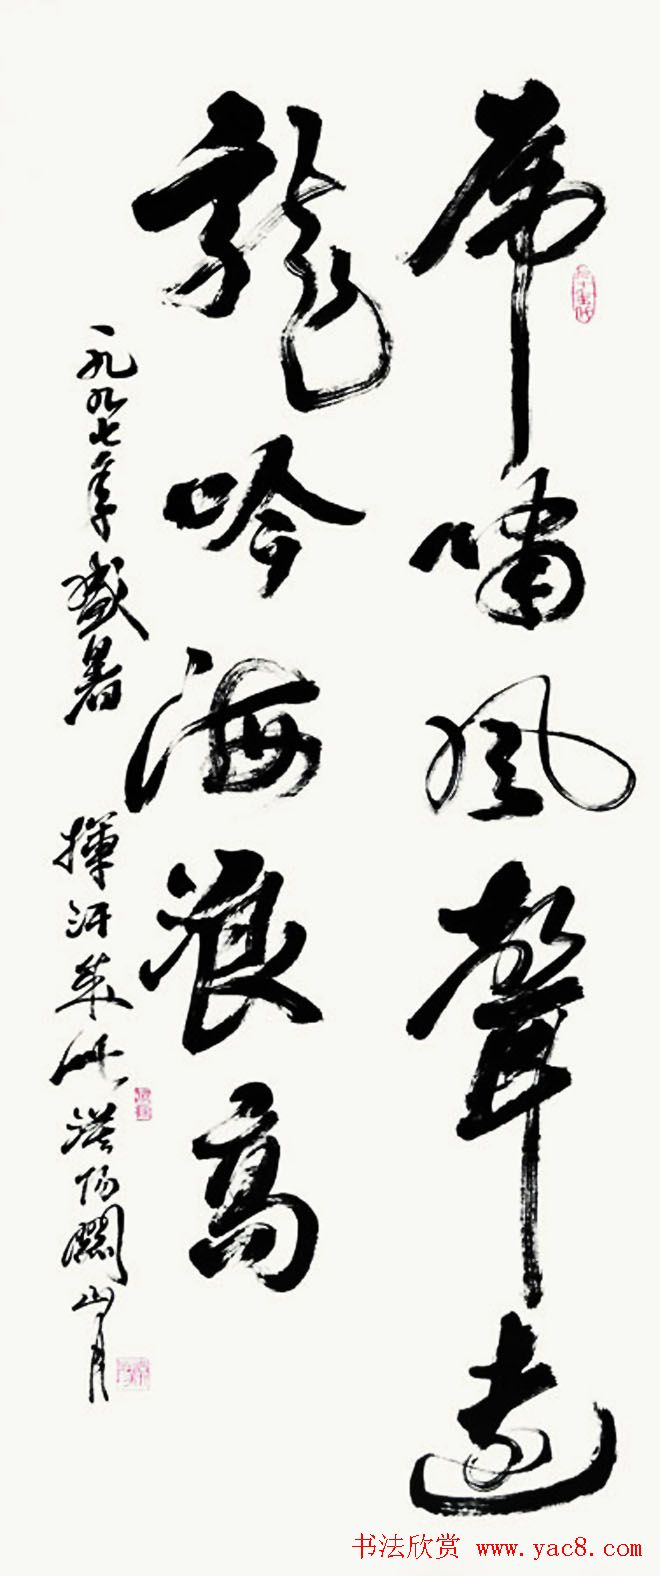 虎啸風聲遠
龍吟海浪高
一九九七年盛暑
揮汗來此漠陽關山月
书法欣赏 www.yac8.com